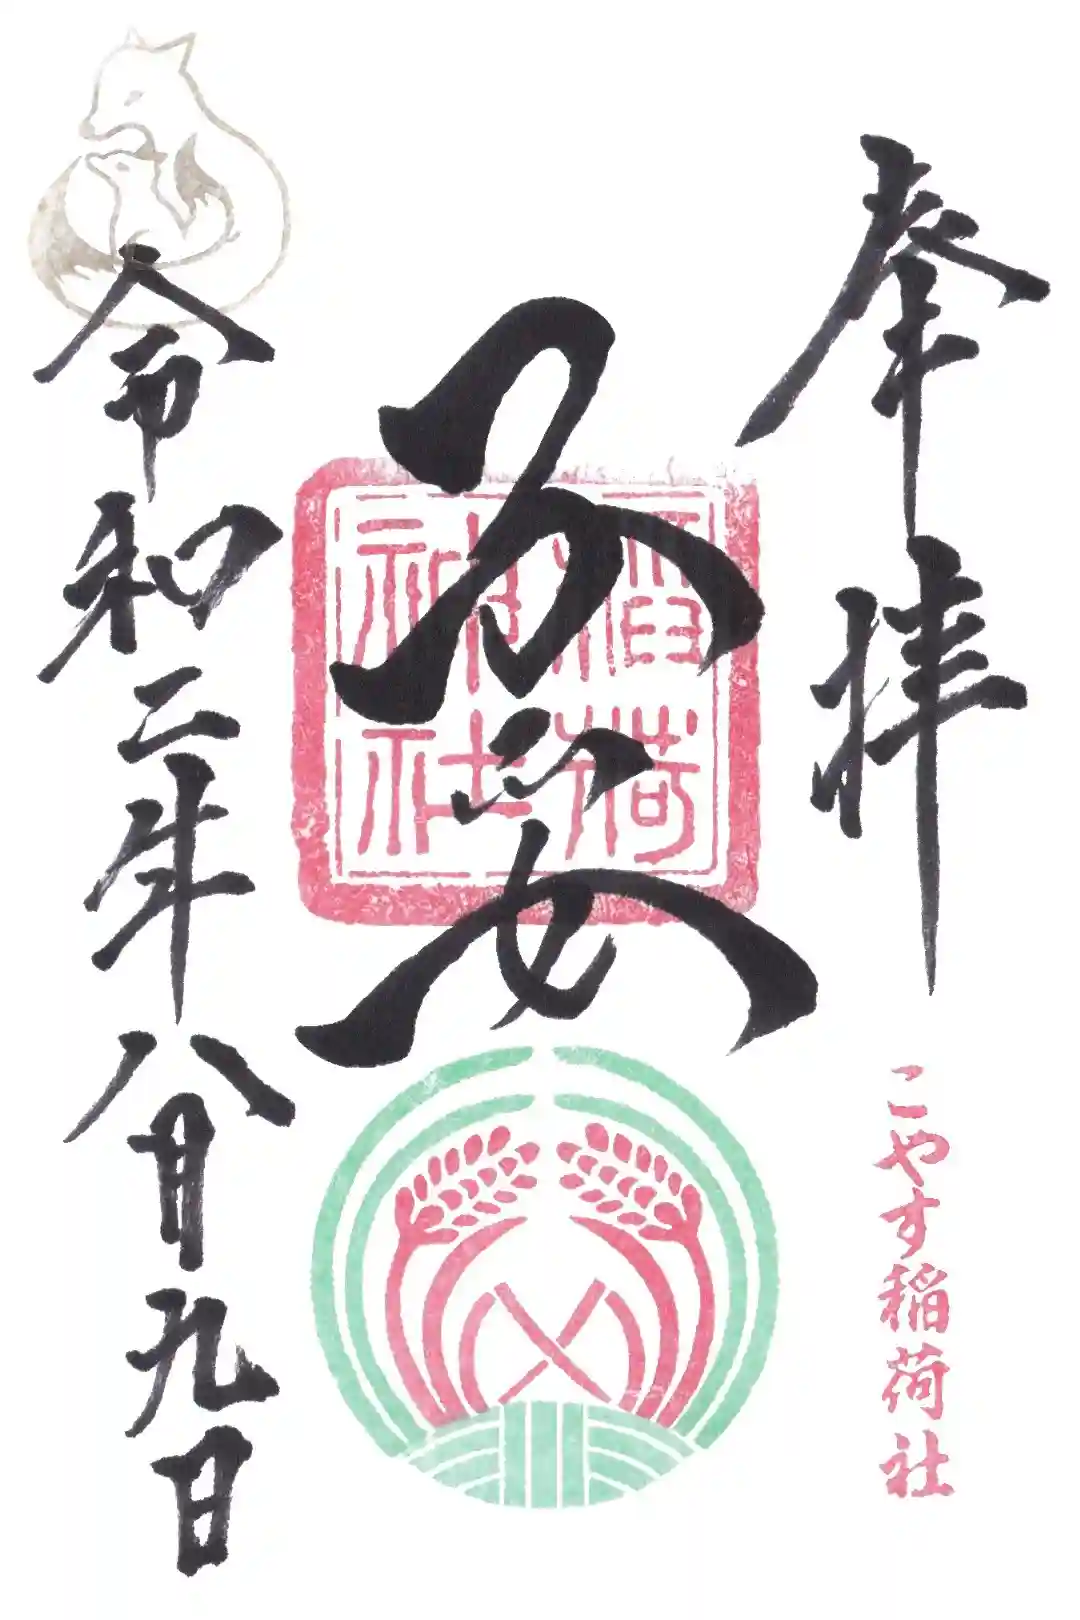 奉拝
こやす稲荷社
子安
稲荷
神社
令和二年八月九日